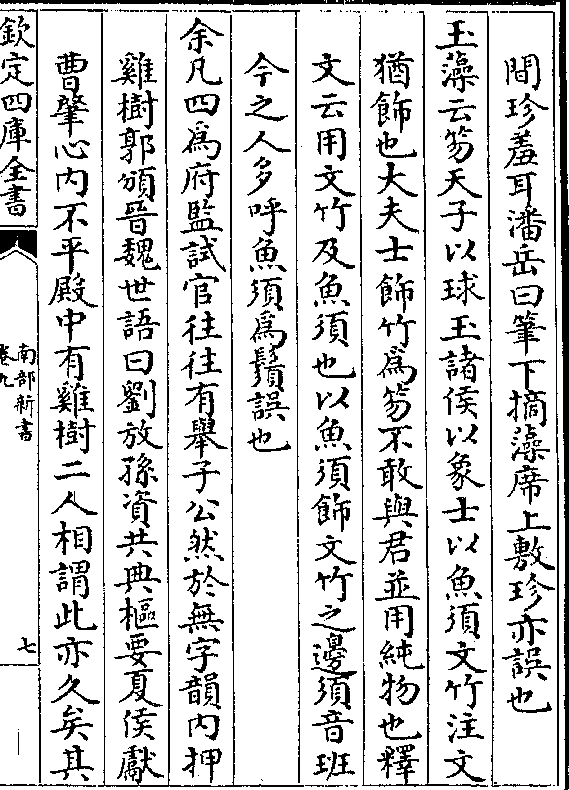 間珍羞耳潘岳曰筆下摛藻席上敷珍亦誤也
玉藻云笏天子以球玉諸侯以象士以魚須文竹注文
猶飾也大夫士飾竹為笏不敢與君並用純物也釋
文云用文竹及魚須也以魚須飾文竹之邊須音班
今之人多呼魚須為鬚誤也
余凡四為府監試官往往有舉子公然於無字韻内押
雞樹郭頒晉魏世語曰劉放孫資共典樞要夏侯獻
曹肇心内不平殿中有雞樹二人相謂此亦久矣其
欽定四庫全書
南部新書
卷九
七